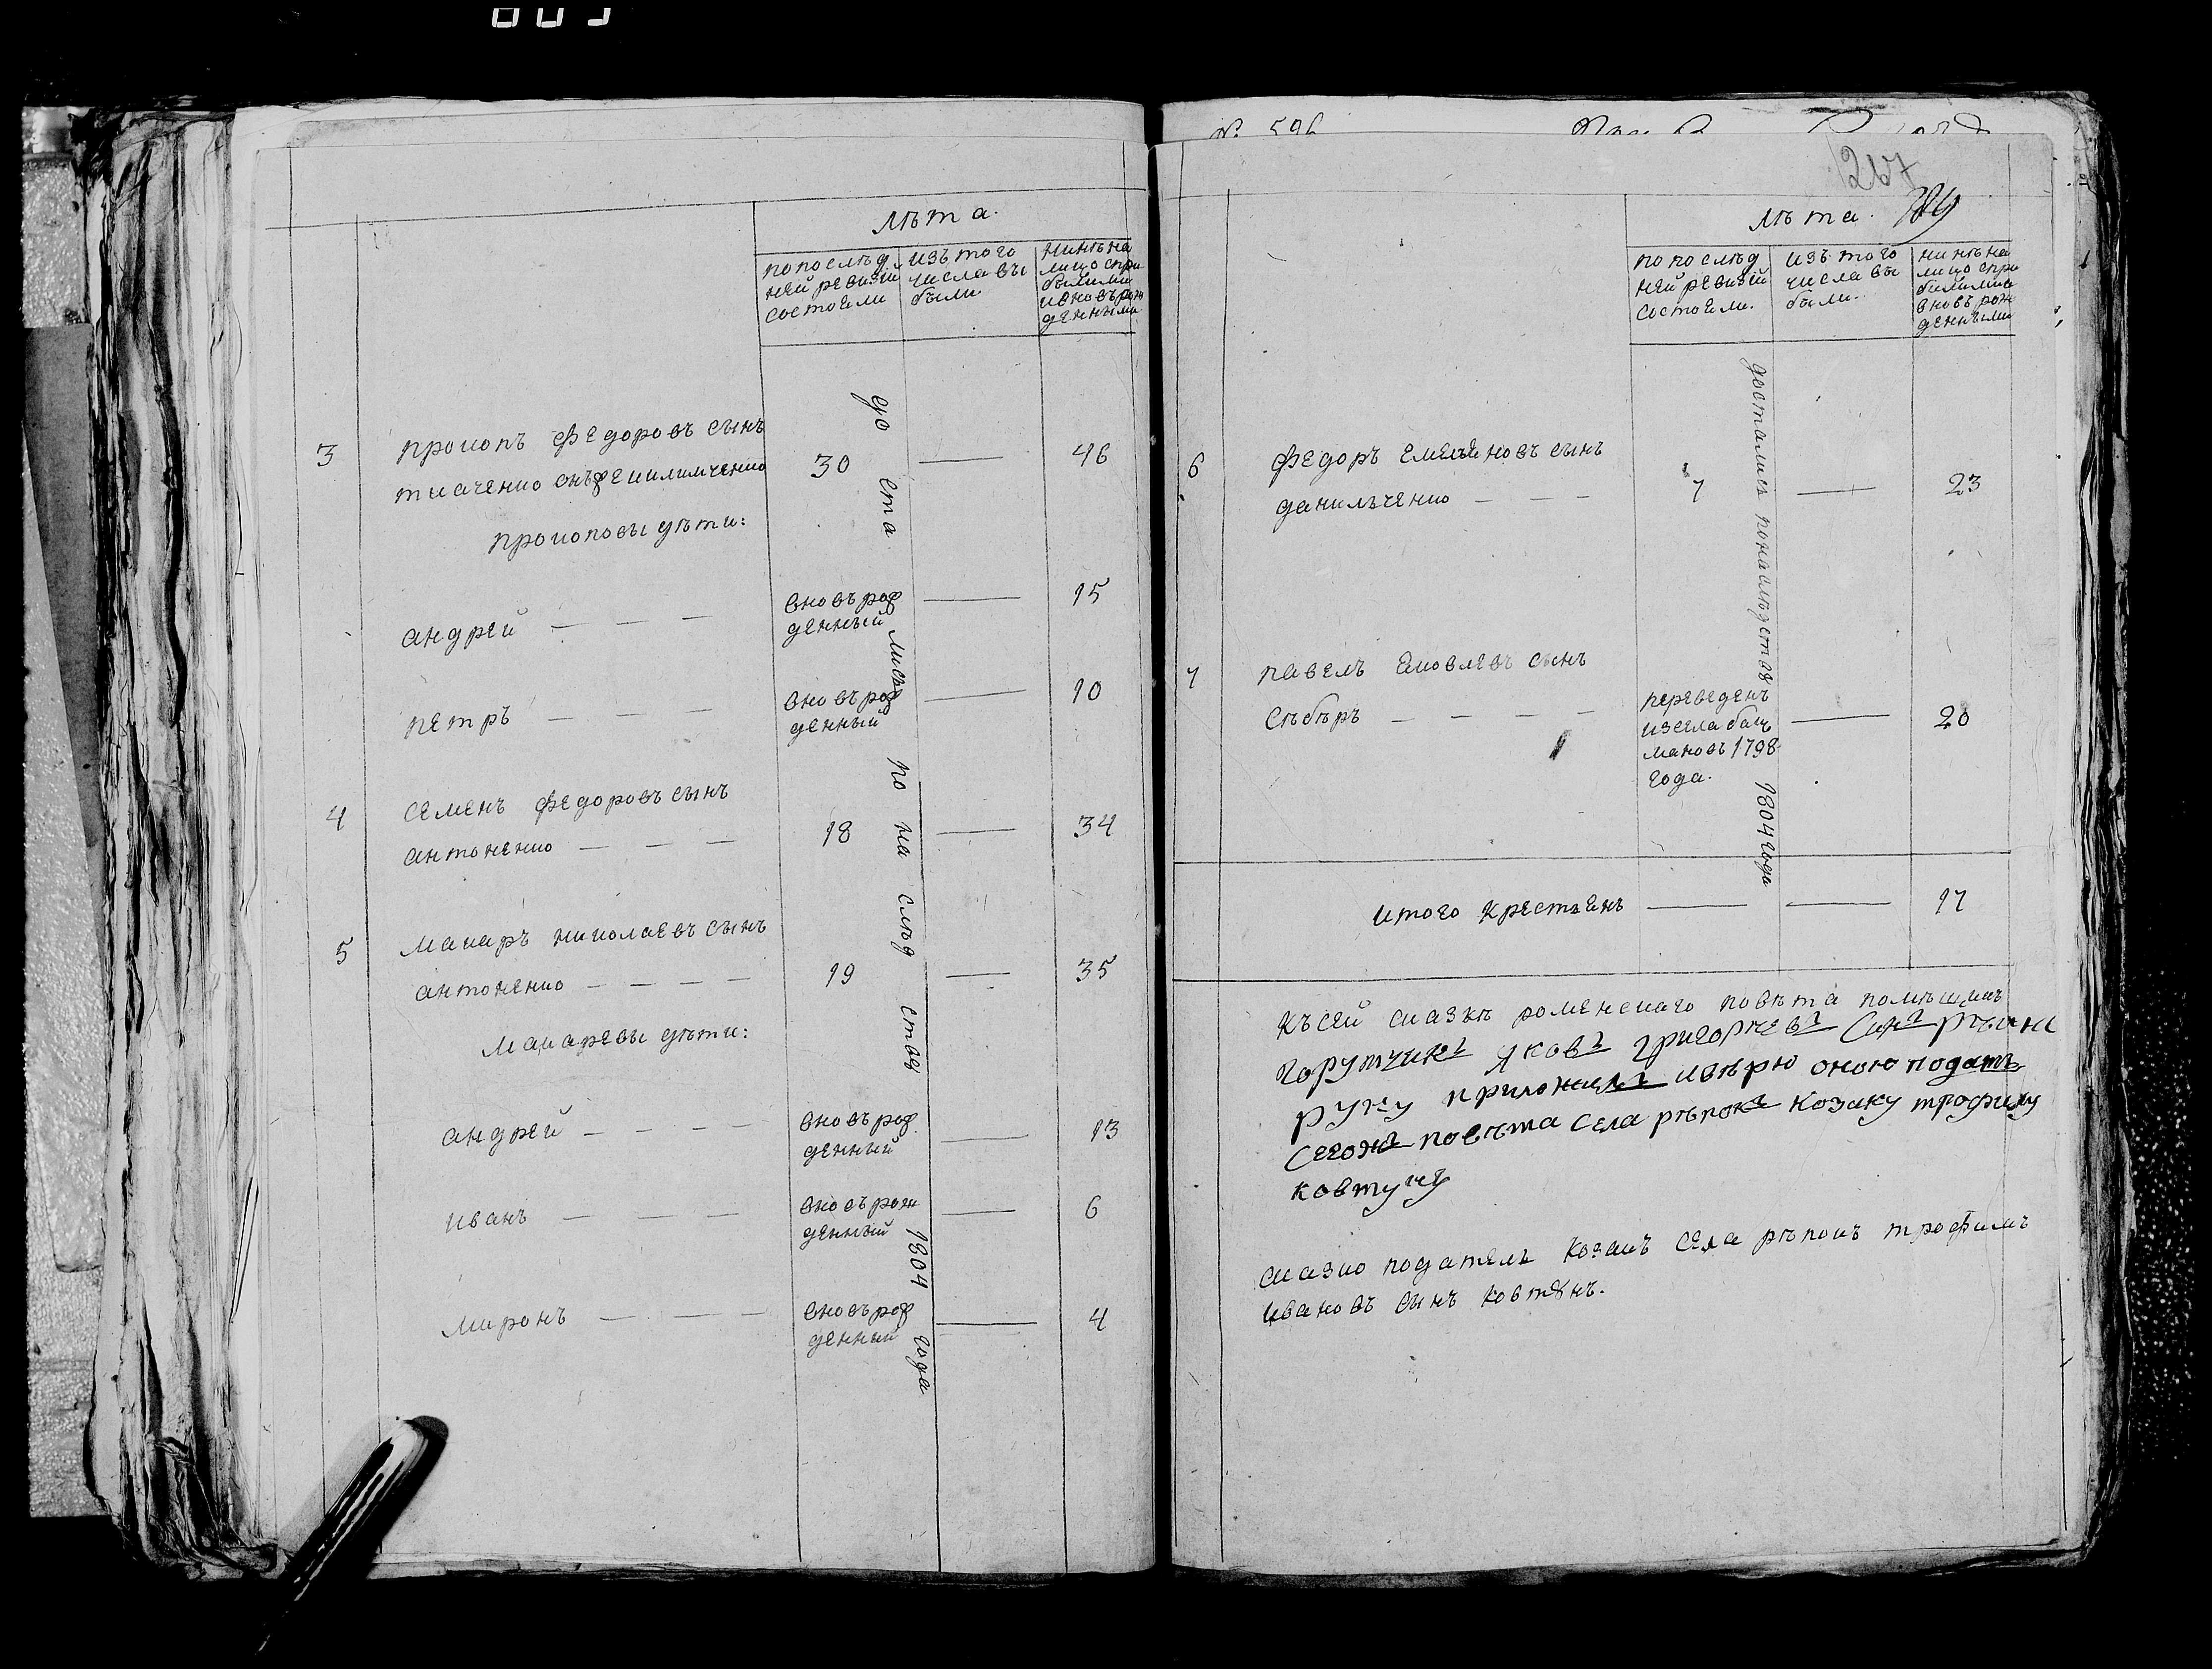 лѣта.
попослѣд
ней ревизiй
состояли
изъ того
числа вы
были.
нинѣ на
лицо спри
былими
ивновърож
денными
3
прокопъ федоровъ сынъ
ткаченко онъже
30
46
прокоповы дѣти:
андрей
вновърож
денный
15
петръ
вновърож
денный
10
4
семенъ федоровъ сынъ
антоненко
18
34
5
макаръ николаевъ сынъ
антоненко
19
35
макаревы дѣти:
андрей
вновърож
денный
13
иванъ
вновърож
денный
6
миронъ
вновърож
денный
4
до ста лись по на слѣд ствꙋ 1804 года
№ 596
267
лѣта.
попослѣд
ней ревизiй
состояли.
изъ того
числа вы
были.
нинѣ на
лицо спри
былими и
вновъ рож
денными
6
федоръ емельяновъ сынъ
данильченко
7
23
7
павелъ яковлевъ сынъ
сѣбѣръ
переведенъ
изсела бац
мановъ 1798
года.
20
достались понаслѣдствꙋ 1804 года
итого крестьянъ
17
къ сей сказкѣ роменскаго повѣта помѣщикъ
порутчикъ яковъ григорiевъ синъ
руку приложилъ ивѣрю оною подать
сегожъ повѣта села рѣпокъ козаку трофиму
ковтуну
сказко податель козакъ села рѣпокъ трофимъ
ивановъ сынъ ковтꙋнъ.